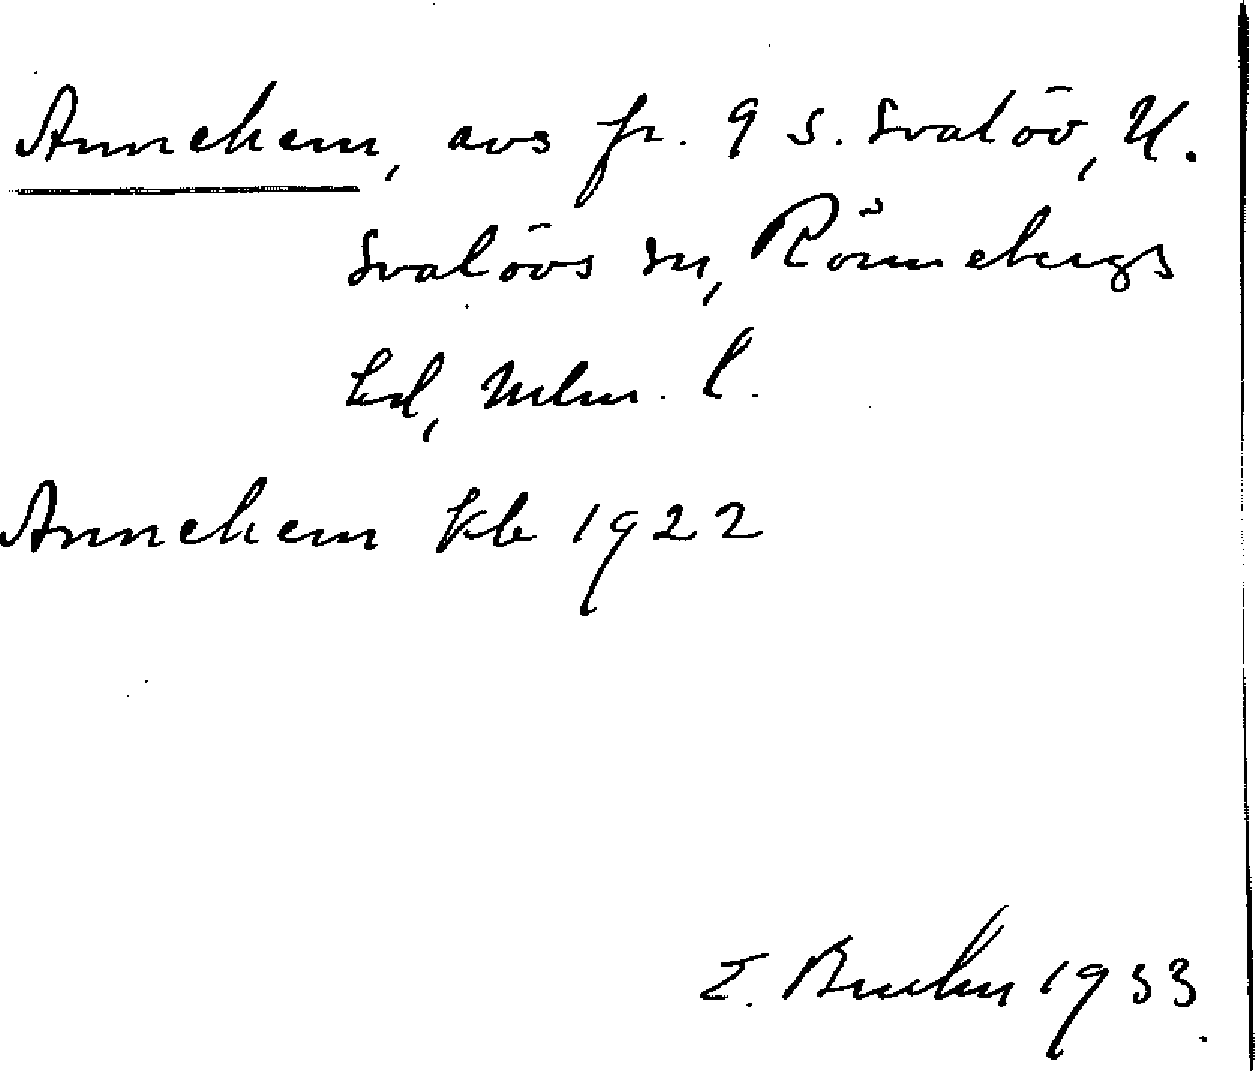 Annehem, avs fr. 9 S. Svalöv, U.
Svalövs sn, Rönnebergs
hd, Mlm. l.
Annehem kb 1922
E. Bruhn 1933